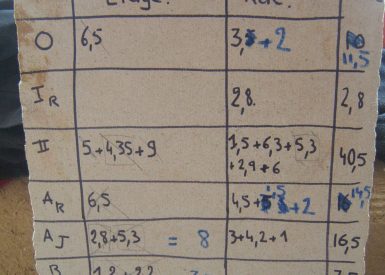 O 6,5 3,5 + 2 11,5
I R 2,8. 2,8
II 5+4,35+9 1,5+6,3+5,3 40,5
+2,9+6
A R 6,5 4,5+ + 2 14,5
A J 2,8+5,3 = 8 3+4,2+1 16,5